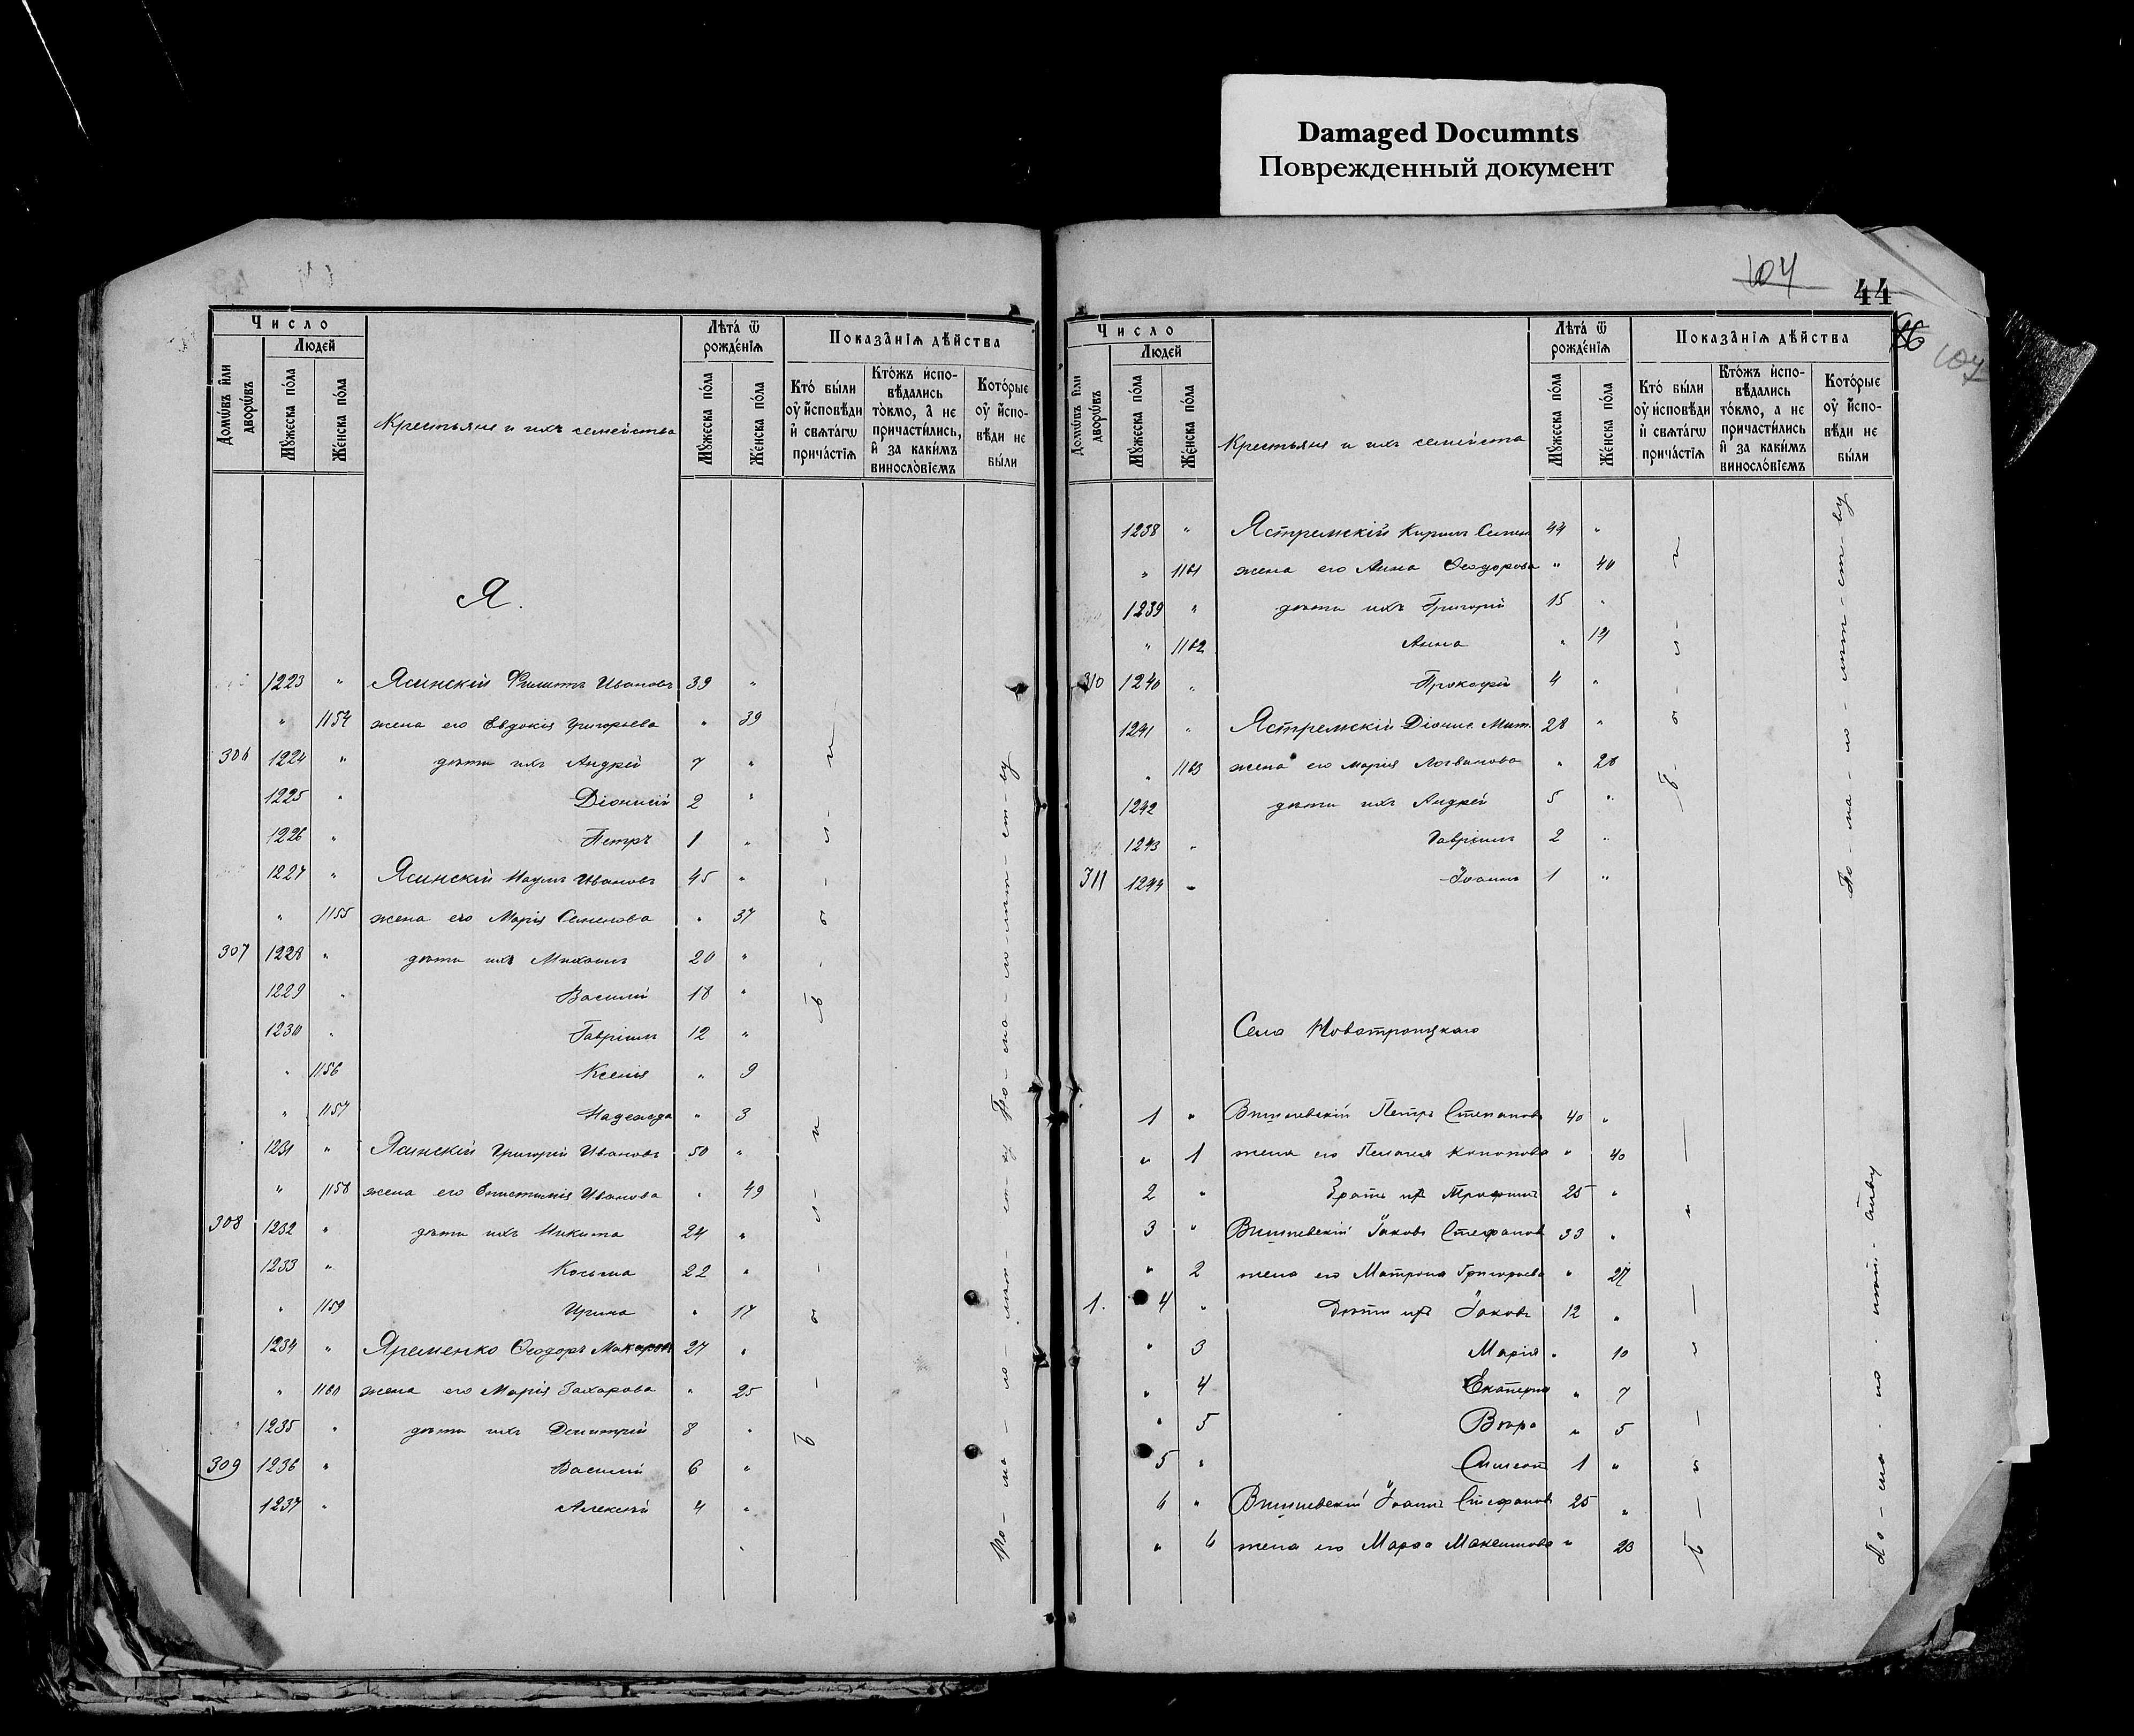 Damaged Documnts
Поврежденный документ
Число
Людей
Домѡвъ и҆лѝ дворѡ́въ
Мꙋ́жеска по́ла
Же́нска по́ла
Крестьяне и ихъ семейства
Лѣ́та ѿ рожде́нїѧ
Мꙋ́жеска по́ла
Же́нска по́ла
Показа̑нїѧ дѣ́йства
Кто̀ бы́ли оу҆ и҆сповѣди и҆ свѧта́гѡ прича́стїѧ
Кто́жъ и҆спо-вѣдались то́кмо, а҆ не причасти́лись, и҆ за каки́мъ винослóвїемъ
Кото́рые оу҆ и҆спо-вѣди не бы́ли
Я.
1223 " Ясинскій Филипъ Ивановъ 39 "
" 1154 жена его Евдокія Григорьева " 39
306 1224 " дѣти ихъ Андрей 7 "
1225 " Діонисій 2 "
1226 " Петръ 1 "
1227 " Ясинскій Наумъ Ивановъ 45 "
" 1155 жена его Марія Семенова " 37
307 1228 " дѣти ихъ Михаилъ 20 "
1229 " Василій 18 "
1230 " Гавріилъ 12 "
" 1156 Ксенія " 9
" 1157 Надежда " 3
1231 " Ясинскій Григорій Ивановъ 50 "
" 1158 жена его Епистимія Иванова " 49
308 1232 " дѣти ихъ Никита 24 "
1233 " Косьма 22 "
" 1159 Ирина " 17
1234 " Яременко Ѳеодоръ Макаровъ 27 "
" 1160 жена его Марія Захарова " 25
1235 " дѣти ихъ Димитрій 8 "
309 1236 " Василій 6 "
1237 " Алексѣй 4 "
б - ы - л - и
б - ы - л - и
По - ма - ло - лѣт - ст - ву
По - ма - ло - лѣт - ст - ву
107
44
107
Число
Людей
Домѡвъ и҆лѝ дворѡ́въ
Мꙋ́жеска по́ла
Же́нска по́ла
Крестьяне и ихъ семейста
Лѣ́та ѿ рожде́нїѧ
Мꙋ́жеска по́ла
Же́нска по́ла
Показа̑нїѧ дѣ́йства
Кто̀ бы́ли оу҆ и҆сповѣди и҆ свѧта́гѡ прича́стїѧ
Кто́жъ и҆спо-вѣдались то́кмо, а не причасти́лись и҆ за каки́мъ винослóвїемъ
Кото́рые оу҆ и҆спо-вѣди не бы́ли
1238 " Ястремскій Кирилъ Семен 44 "
" 1161 жена его Анна Ѳеодорова " 40
1239 " дѣти ихъ Григорій 15 "
" 1162 Анна " 12
310 1240 " Прокофій 4 "
1241 " Ястремскій Діонис. Мит. 28 "
" 1163 жена его Марія Логвинова " 28
1242 дѣти ихъ Андрей 5 "
1243 " Гавріилъ 2 "
311 1244 " Іоаннъ 1 "
Села Новотроицкаго
1 " Вишневскій Петръ Степановъ 40 "
" 1 жена его Пелагея Кононова " 40
2 " Братъ их Трофимъ 25 "
3 " Вишневскій Іаковъ Стефанов 33 "
" 2 жена его Матрона Григорьева " 27
1. 4 " Дѣти их Іаковъ 12 "
" 3 Марія " 10
" 4 Екатерина " 7
" 5 Вѣра " 5
5 " Симеон 1 "
6 " Вишневскій Іоаннъ Стефановъ 25 "
" 6 жена его Марфа Максимова " 23
б - ы - л - и
По - ма - ло - лѣт - ст - ву
По - ма - ло - лѣт - ству